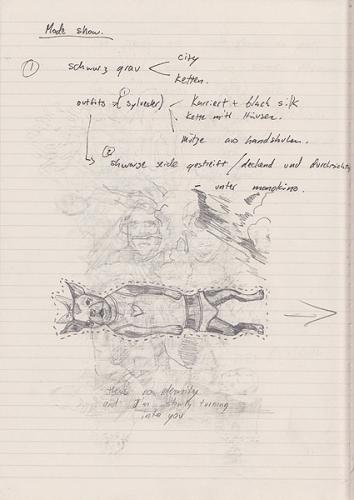 Mode show.
① schwarz grau
city
ketten.
outfits ① sylvester)
Karriert + black silk
kette mitt Häusern.
Mütze aus handshuhen.
② shwarze seide gestreift / deckend und durchsichtig
– unter monokino.
there no identity
and I'm slowly turning
into you